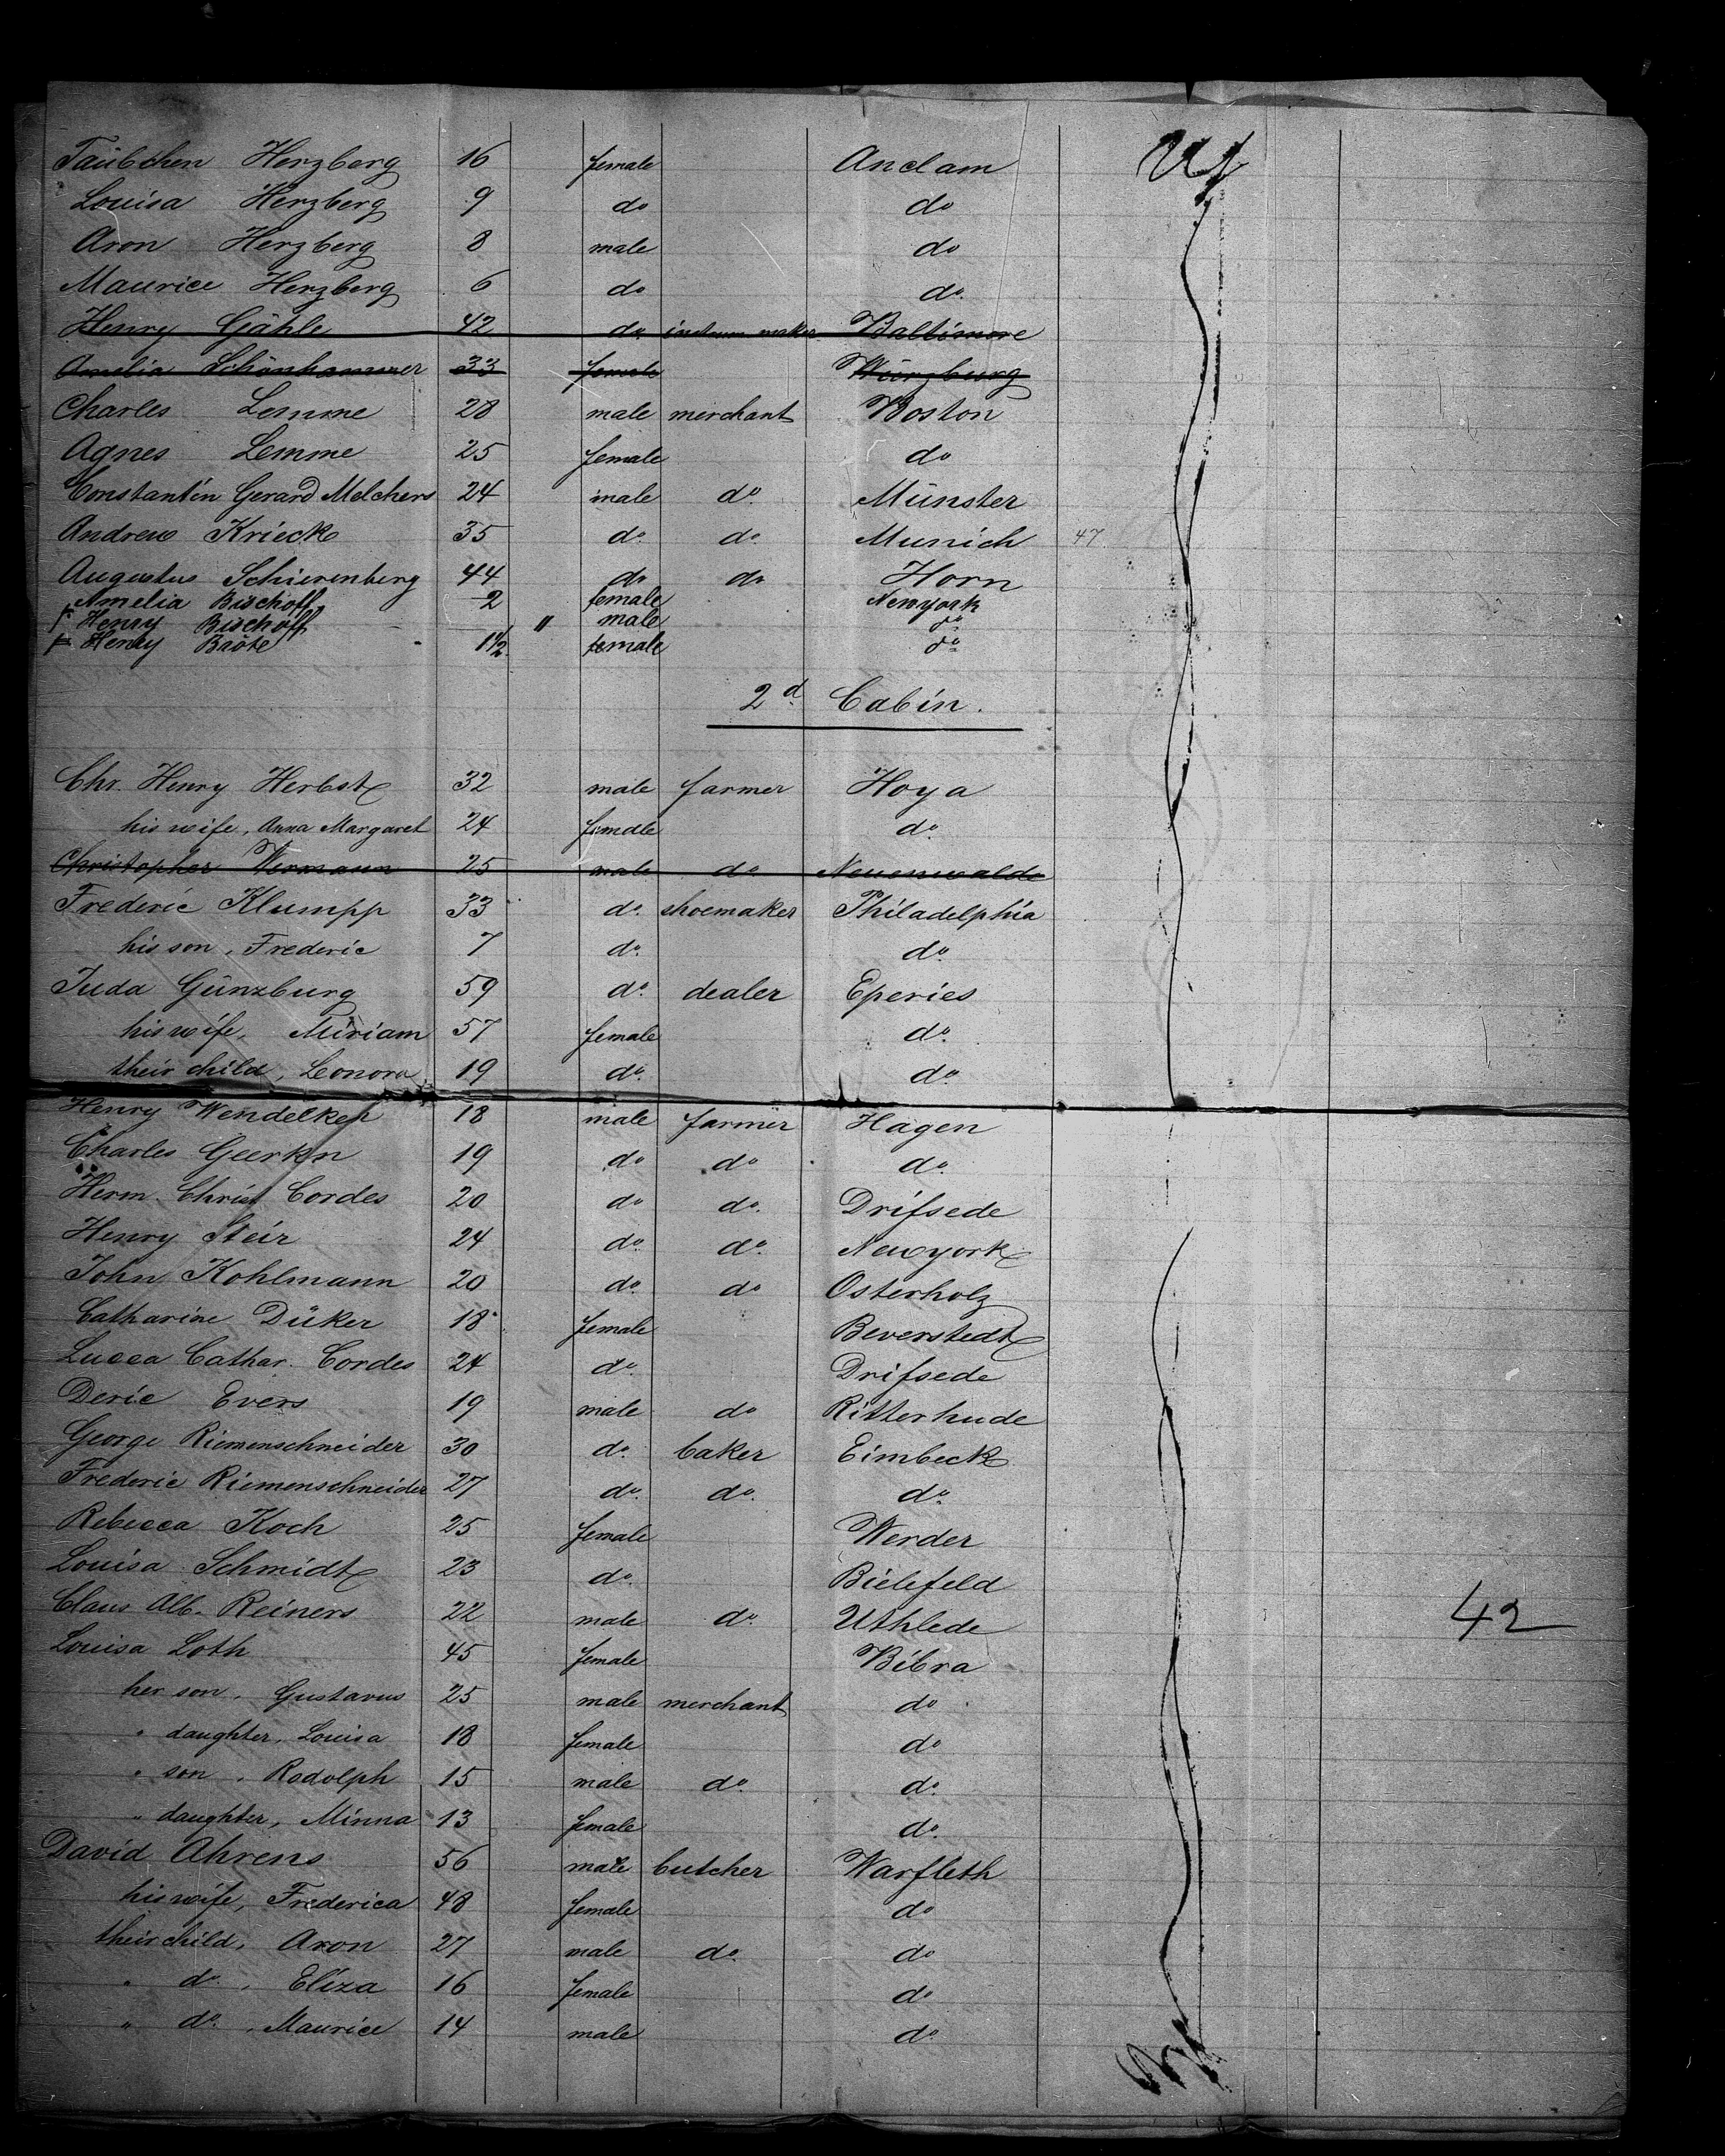 Taübchen Herzberg 16 female Anclam
Louisa Herzberg 9 do do
Aron Herzberg 8 male do
Maurice Herzberg 6 do do
Henry Gähle 42 do instrum maker Baltimore
Amelia Schönhammer 33 female Würzburg
Charles Lemme 28 male merchant Boston
Agnes Lemme 25 female do
Constantin Gerard Melchers 24 male do Münster
Andrew Krieck 35 do do Munich 47
Augustus Schierenberg 44 do do Horn
Amelia Bischoff 2 female Newyork
Henry Bischoff " male do
Henry Bröte 1 1/2 female do
2d Cabin.
Chr. Henry Herbst 32 male farmer Hoya
his wife, Anna Margaret 24 female do
Christopher Wermann 25 male do Neuenwalde
Frederic Klumpp 33 do shoemaker Philadelphia
his son, Frederic 7 do do
Juda Günzburg 59 do dealer Eperies
his wife, Miriam 57 female do
their child, Leonora 19 do do
Henry Wendelken 18 male farmer Hagen
Charles Geerkn 19 do do do
Herm. Christ Cordes 20 do do Drifsede
Henry Steir 24 do do Newyork
John Kohlmann 20 do do Osterholz
Catharine Düker 18 female Beverstedt
Lucca Cathar. Cordes 24 do Drifsede
Deric Evers 19 male do Ritterhude
George Riemenschneider 30 do baker Eimbeck
Frederic Riemenschneider 27 do do do
Rebecca Koch 25 female Werder
Louisa Schmidt 23 do Bielefeld
Claus Alb. Reiners 22 male do Uthlede 42
Louisa Loth 45 female Bibra
her son, Gustavus 25 male merchant do
" daughter, Louisa 18 female do
" son, Rodolph 15 male do do
" daughter, Minna 13 female do
David Ahrens 56 male butcher Warfleth
his wife, Frederica 48 female do
their child, Aron 27 male do do
" do, Eliza 16 female do
" do, Maurice 14 male do